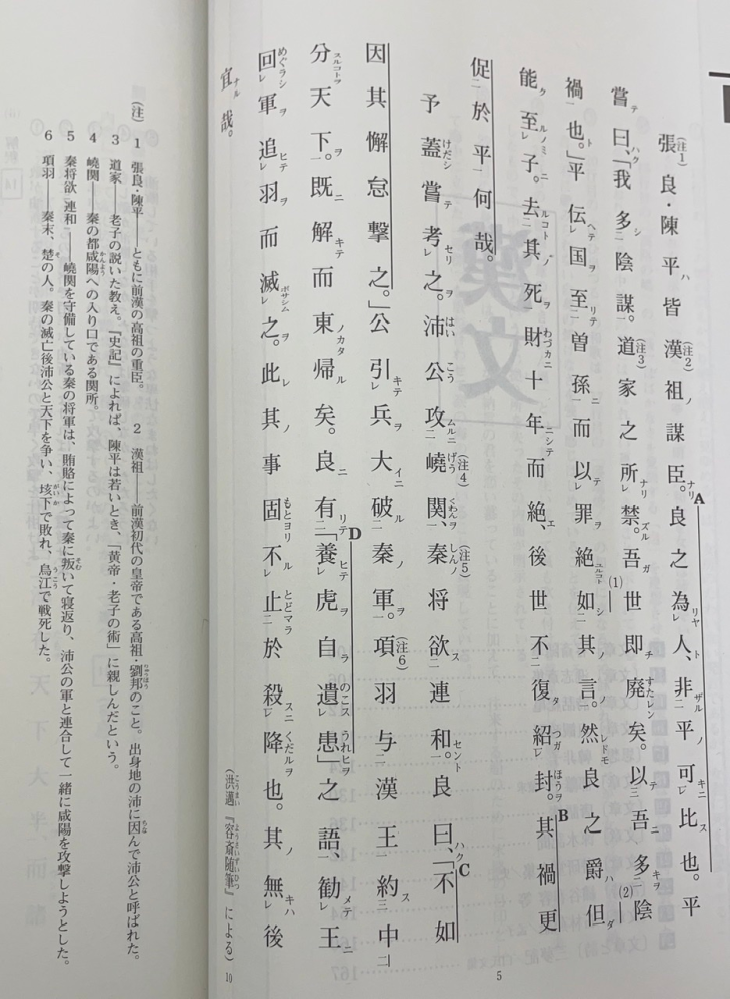 張良・陳平皆漢祖謀臣。良之為人、非平可比也。平
嘗曰、「我多陰謀。道家之所禁。吾世即廃矣。以吾多陰
禍也。」平伝国至曽孫而以罪絶如其言。然良之爵但
能至子。去其死財十年而絶、後世不復紹封。其禍更
促於平何哉。
予蓋嘗考之。沛公攻嶢関、秦将欲連和。良曰、「不如
因其懈怠撃之。」公引兵大破秦軍。項羽与漢王約中
分天下。既解而東帰矣。良有「養虎自遺患」之語、勧王
回軍追羽而滅之。此其事固不止於殺降也。其無後
宜哉。
(洪邁『容斎随筆』による)
(注) 1 張良・陳平――ともに前漢の高祖の重臣。 2 漢祖――前漢初代の皇帝である高祖・劉邦のこと。出身地の沛に因んで沛公と呼ばれた。
3 道家――老子の説いた教え。『史記』によれば、陳平は若いとき、「黄帝・老子の術」に親しんだという。
4 嶢関――秦の都咸陽への入り口である関所。
5 秦将欲連和――嶢関を守備している秦の将軍は、賄賂によって秦に叛いて寝返り、沛公の軍と連合して一緒に咸陽を攻撃しようとした。
6 項羽――秦末、楚の人。秦の滅亡後沛公と天下を争い、垓下で敗れ、烏江で戦死した。